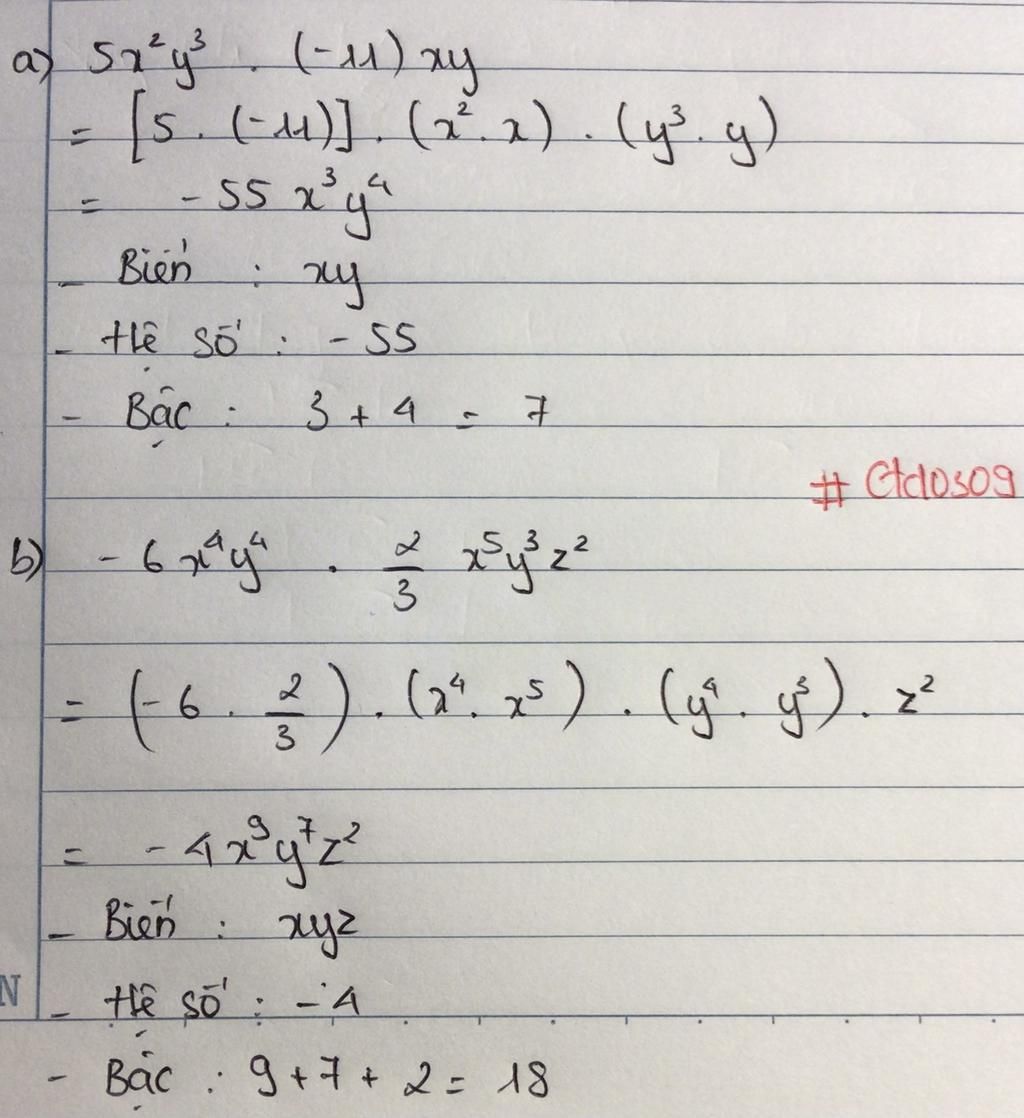 a) 5x²y³ . (-11) xy
= [5 . (-11)] . (x² . x) . (y³ . y)
= -55 x³y⁴
- Biến : xy
- Hệ số : -55
- Bậc : 3 + 4 = 7
b) -6x⁴y⁴ . 2/3 x⁵y³z²
= (-6 . 2/3) . (x⁴ . x⁵) . (y⁴ . y³) . z²
= -4x⁹y⁷z²
- Biến : xyz
N
- Hệ số : -4
- Bậc : 9+7+2 = 18